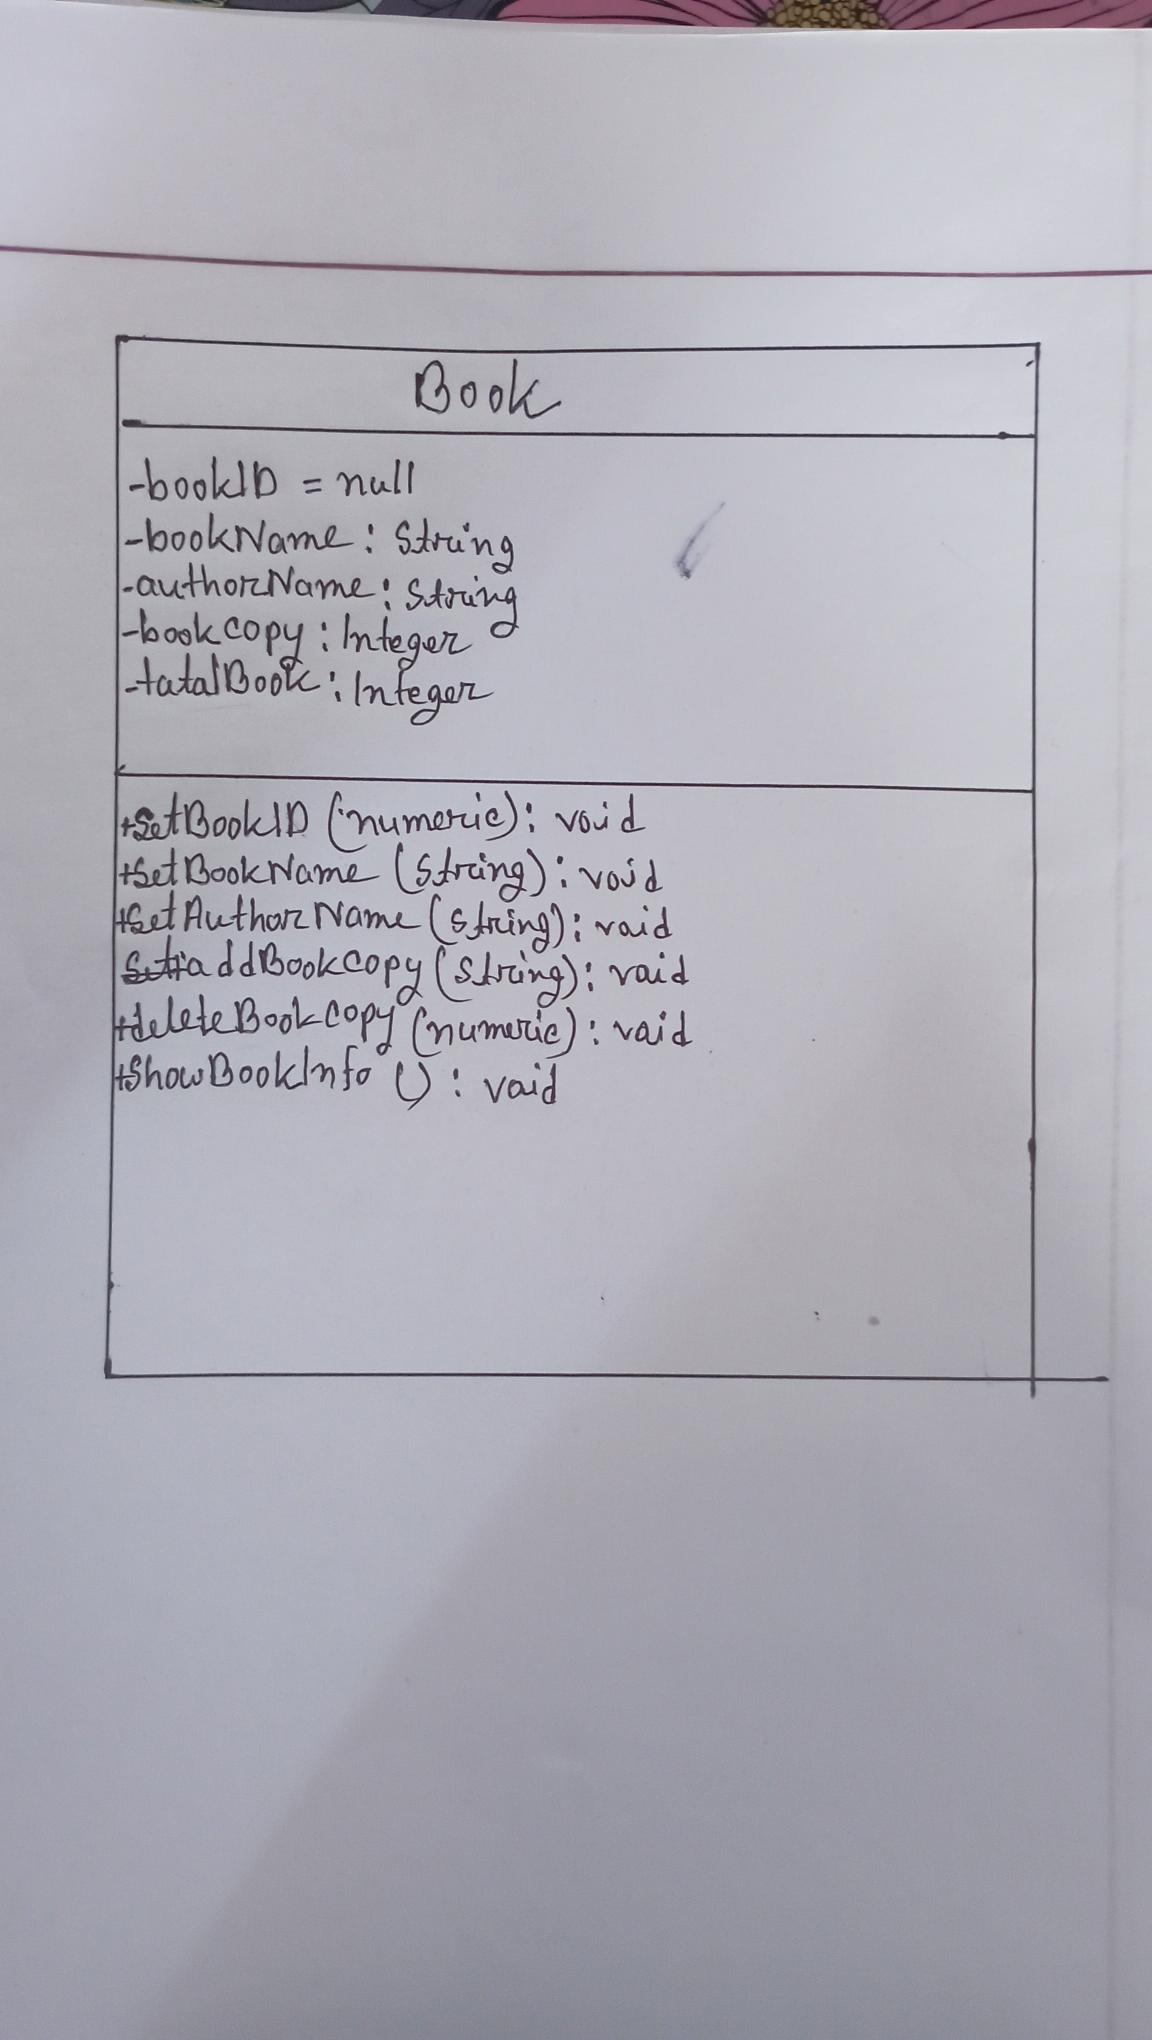 Book
-bookID = null
-bookName: String
-authorName: String
-bookcopy: Integer
-tatalBook: Integer
+SetBookID (numeric): void
+SetBookName (String): void
+SetAuthorName (String): vaid
addBookcopy (String): vaid
+deleteBookcopy (numeric): vaid
+ShowBookInfo (): vaid